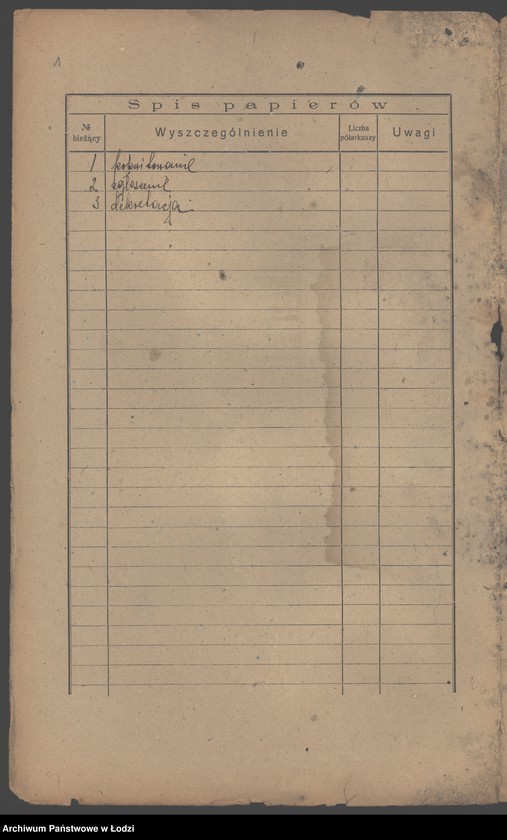 1
Spis papierów
№ bieżący
Wyszczególnienie
Liczba półarkuszy
Uwagi
1 pokwitowanie
2 zgłoszenie
3 dekretacja
Archiwum Państwowe w Łodzi